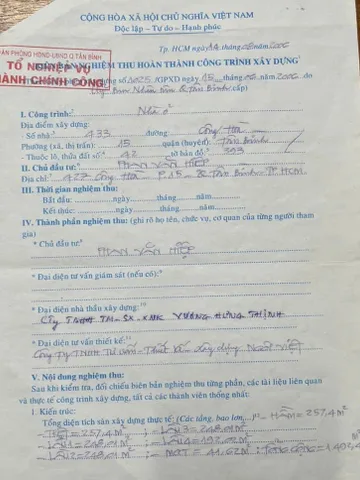 CỘNG HÒA XÃ HỘI CHỦ NGHĨA VIỆT NAM
Độc lập – Tự do – Hạnh phúc
Tp. HCM ngày tháng năm 200
VĂN PHÒNG HĐND-UBND Q.TÂN BÌNH
TỔ NGHIỆP VỤ
HÀNH CHÍNH CÔNG
BẢN NGHIỆM THU HOÀN THÀNH CÔNG TRÌNH XÂY DỰNG
dựng số /GPXD ngày 15 tháng năm 200 do
cấp)
I. Công trình: Nhà ở
Địa điểm xây dựng:
- Số nhà: 433 đường: Cộng Hòa
Phường (xã, thị trấn): 15 quận (huyện): Tân Bình
- Thuộc lô, thửa đất số: 42 tờ bản đồ:
II. Chủ đầu tư: PHAN VĂN HIỆP
Địa chỉ: Cộng Hòa P.15 – Q Tân Bình – TP HCM
III. Thời gian nghiệm thu:
Bắt đầu: ngày tháng năm
Kết thúc: ngày tháng năm
IV. Thành phần nghiệm thu: (ghi rõ họ tên, chức vụ, cơ quan của từng người tham
gia)
* Chủ đầu tư:
PHAN VĂN HIỆP
* Đại diện tư vấn giám sát (nếu có):
* Đại diện nhà thầu xây dựng:
CTy TNHH TM – SX – XNK VƯƠNG HƯNG THỊNH
* Đại diện tư vấn thiết kế:
Công Ty TNHH Tư vấn – Thiết kế – Xây dựng
V. Nội dung nghiệm thu:
Sau khi kiểm tra, đối chiếu biên bản nghiệm thu từng phần, các tài liệu liên quan
và thực tế công trình xây dựng, tất cả các thành viên thống nhất:
1. Kiến trúc:
Tổng diện tích sàn xây dựng thực tế: (Các tầng, bao lơn,...) – Hầm = 257,4 m²
– Trệt = 257,4 M² ; – Lầu 3 = 248,01 M²
– Lầu 1 = 248,01 M² ; – Lầu 4 = M²
– Lầu 2 = 248,01 M² ; – MÁI = 41,62 M² ; Tổng cộng =